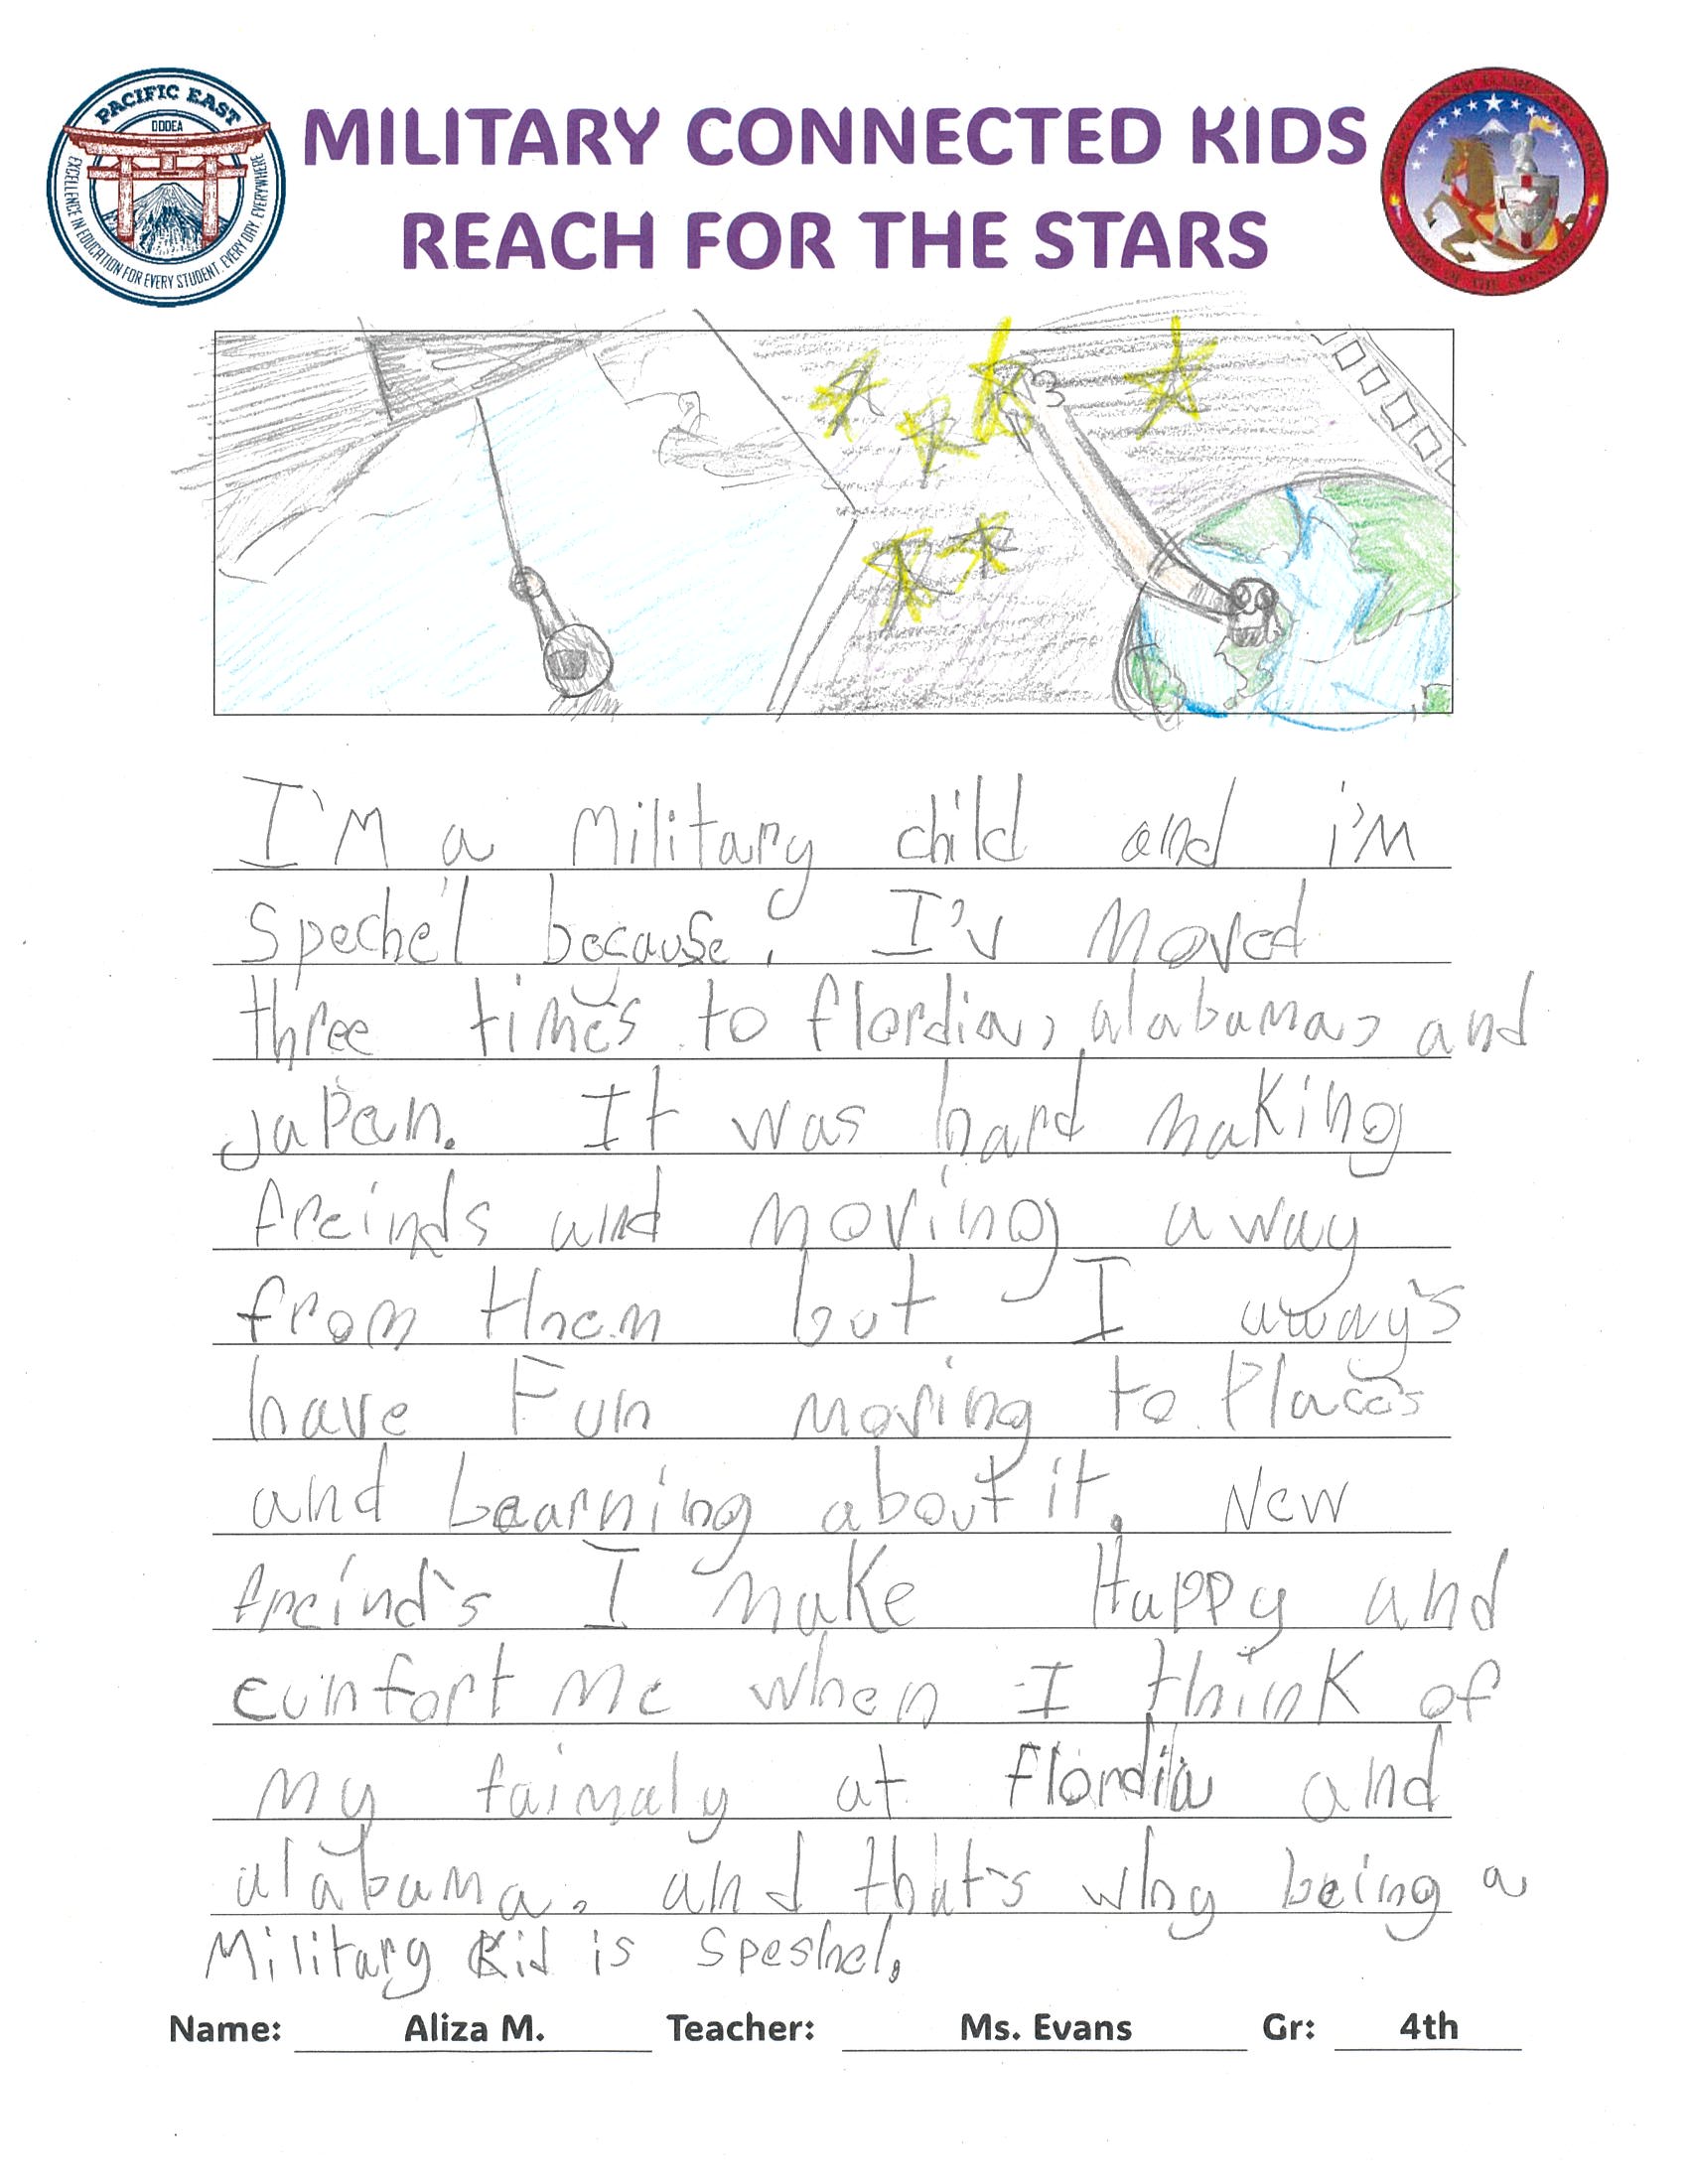 PACIFIC EAST
DODEA
EXCELLENCE IN EDUCATION FOR EVERY STUDENT, EVERY DAY, EVERYWHERE
MILITARY CONNECTED KIDS
REACH FOR THE STARS
I'M a Military child and i'M
speche'l because: I'v Moved
three times to flordia, alabama, and
japan. It was hard making
freinds and moving away
from them but I aways
have Fun moving to Places
and Learning about it. New
freind's I make Happy and
cunfort me when I think of
my faimaly at Flordia and
alabama. and that's why being a
Military Kid is speshel.
Name: Aliza M. Teacher: Ms. Evans Gr: 4th